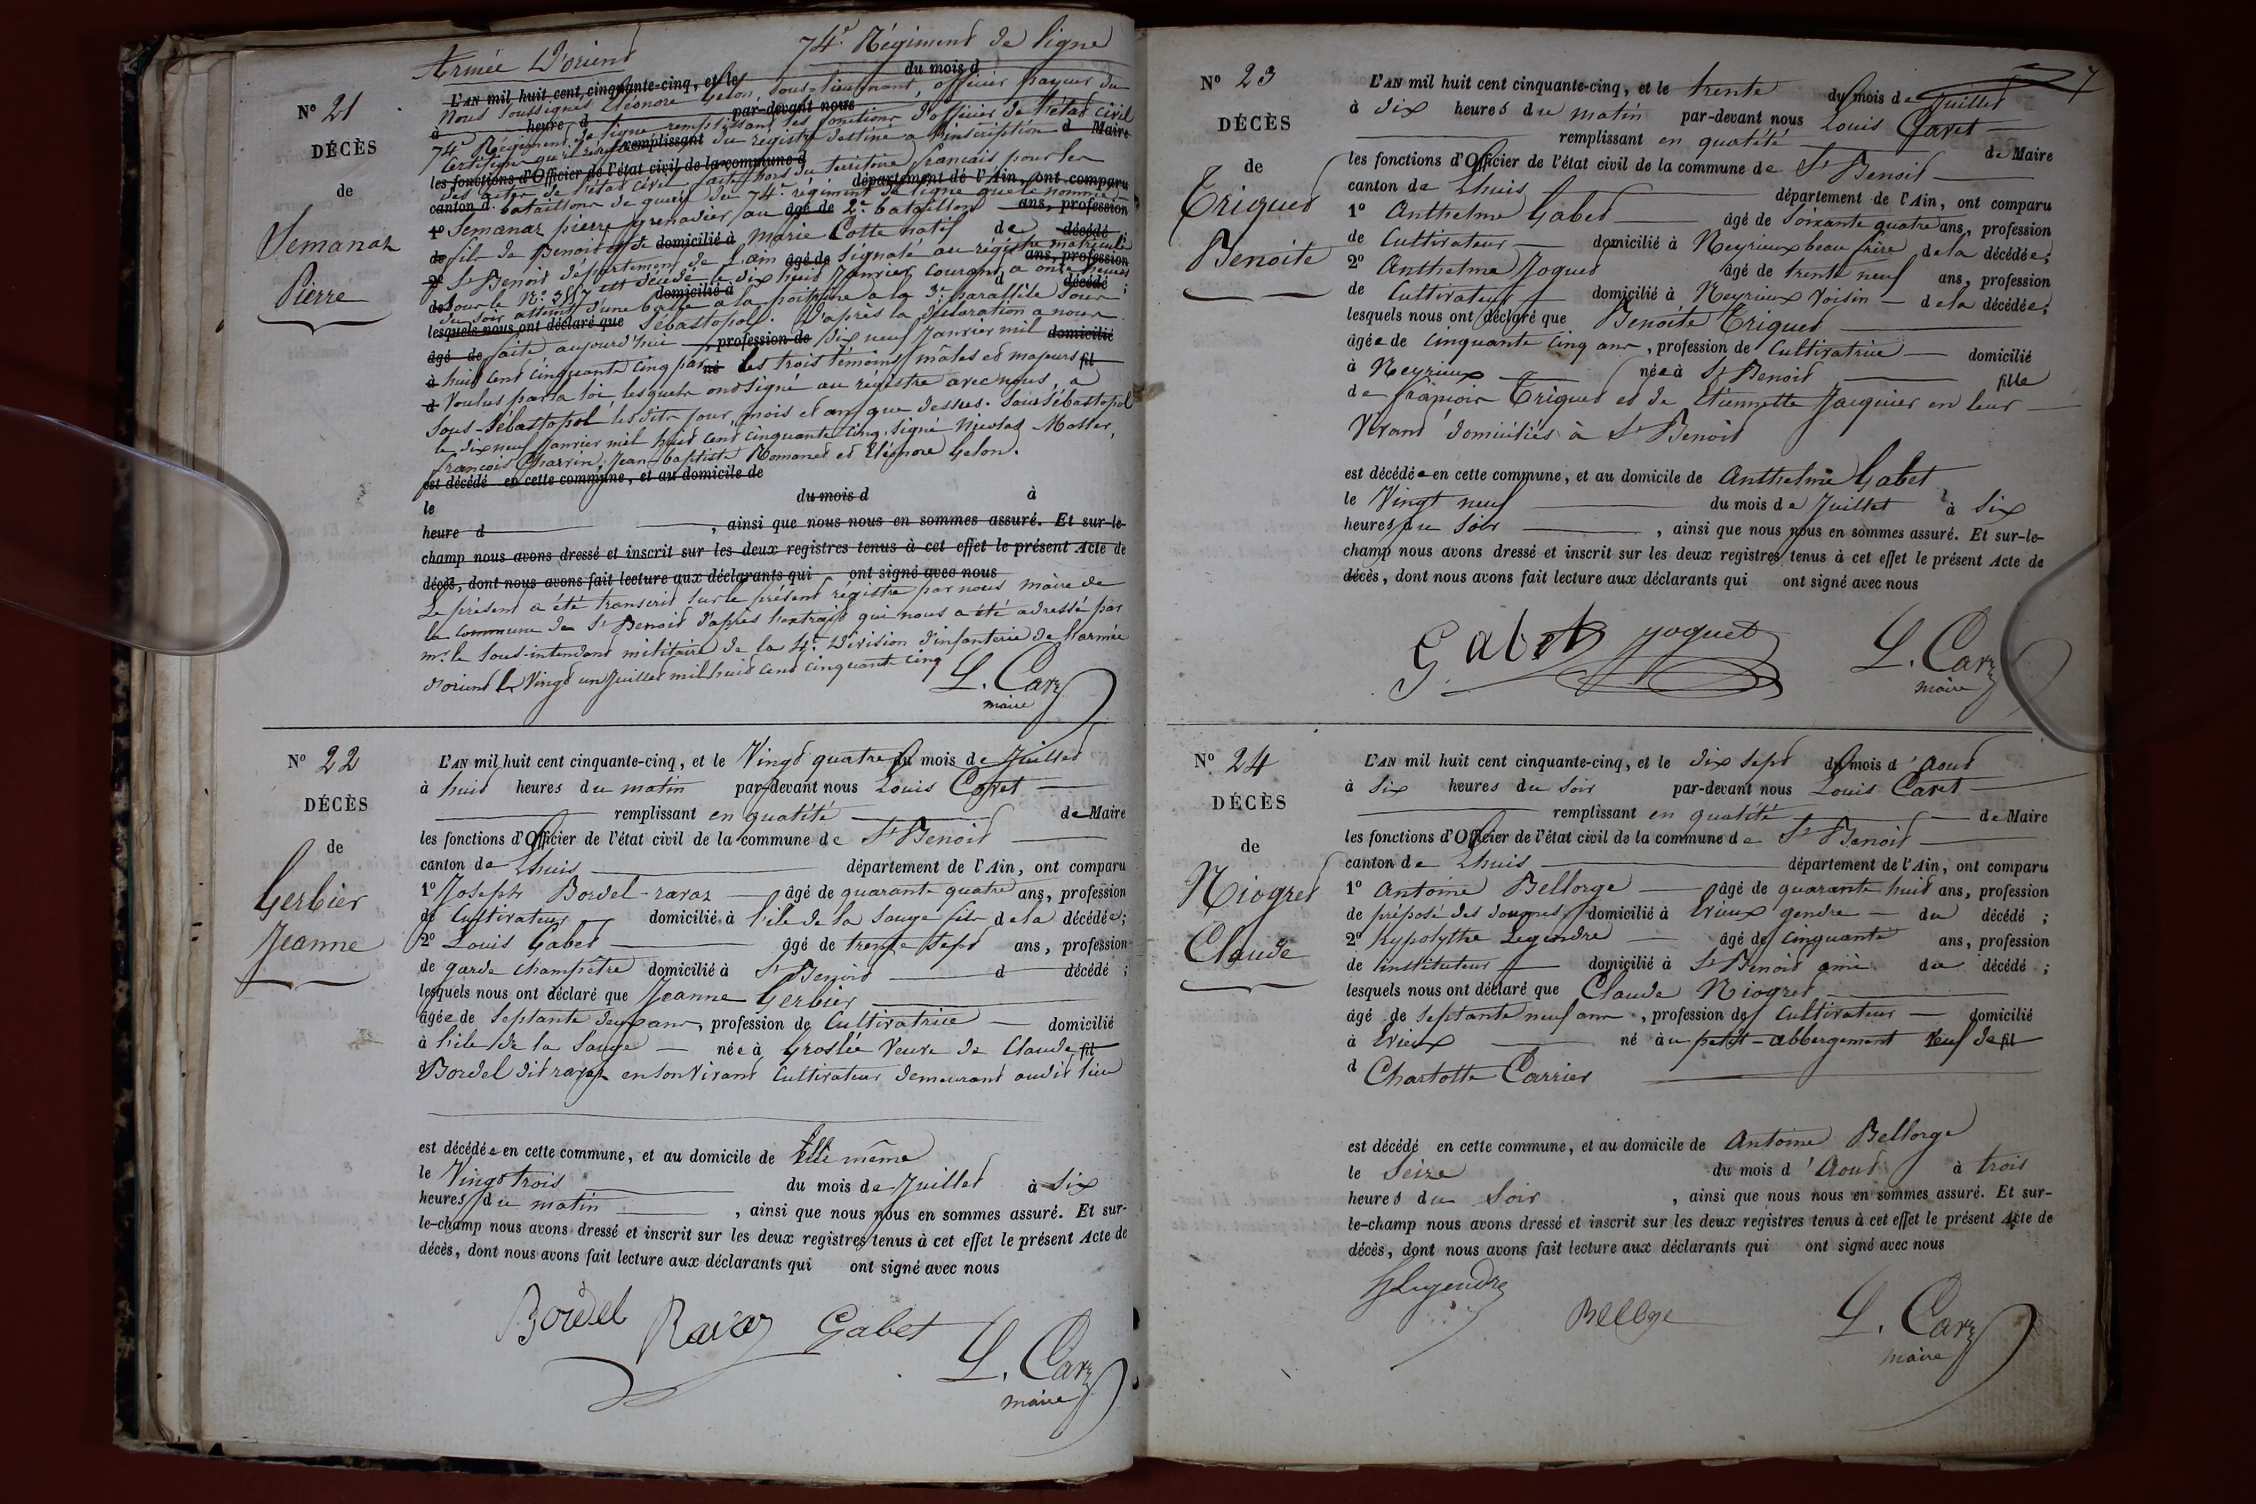 Armée D'orient 74e Régiment de ligne
L'AN mil huit cent cinquante-cinq, et le du mois d
Nous soussigné Eléonore Gelon, sous-lieutenant, officier payeur du
N° 21
à heure d par-devant nous
74e Régiment de ligne remplissant les fonctions d'officier de l'état civil
DÉCÈS
remplissant d Maire
certifions qu'il résulte du registre destiné a l'inscription
les fonctions d'Officier de l'état civil de la commune d
des actes de l'état civil faits hors du territoire français pour les
de
département de l'Ain, ont comparu
canton d bataillons de guerre du 74e régiment de ligne que le nommé
Semanaz
1° Semanaz pierre grenadier au âgé de 2e bataillon ans, profession
Pierre
de fils de Benoit et de domicilié à Marie Cotte natif de décédé ;
2° St Benoit département de l'ain âgé de signalé au registre matricule ans, profession
de sous le N°. 3557 est décédé le dix huit Janvier courant a onze heures
domicilié à d décédé ;
du soir atteint d'une balle a la poitrine a la 3e parallèle sous
lesquels nous ont déclaré que Sébastopol. D'après la déclaration a nous
âgé de faite aujourd'hui profession de dix neuf Janvier mil domicilié
à huit cent cinquante cinq par né les trois témoins mâles et majeurs fil
d Voulus par la loi, lesquels ont signé au registre avec nous, a
Sous-Sébastopol les dits jour, mois et an que dessus. Sous Sébastopol
le dix neuf Janvier mil huit cent cinquante cinq, signé Nicolas Moller,
françois Charvin, Jean-baptiste Romanet et Eléonore Gelon.
est décédé en cette commune, et au domicile de
le du mois d à
heure d , ainsi que nous nous en sommes assuré. Et sur-le-
champ nous avons dressé et inscrit sur les deux registres tenus à cet effet le présent Acte de
décès, dont nous avons fait lecture aux déclarants qui ont signé avec nous
Le présent a été transcrit sur le présent registre par nous maire de
la commune de St Benoit d'après l'extrait qui nous a été adressé par
mr. le Sous-intendant militaire de la 4e. Division d'infanterie de l'armée
d'orient le Vingt un Juillet mil huit cent cinquante cinq
L. Carz
maire
N° 22
DÉCÈS
de
Gerbier
Jeanne
L'AN mil huit cent cinquante-cinq, et le Vingt quatre du mois de Juillet
à huit heures du matin par-devant nous Louis Caret
remplissant en qualité de Maire
les fonctions d'Officier de l'état civil de la commune de St Benoit
canton de Lhuis département de l'Ain, ont comparu
1° Joseph Bordel-ravaz âgé de quarante quatre ans, profession
de Cultivateur domicilié à l'ile de la Sauge fils de la décédée;
2° Louis Gabet âgé de trente sept ans, profession
de garde champêtre domicilié à St Benoit d décédé ;
lesquels nous ont déclaré que Jeanne Gerbier
âgée de Septante deux ans, profession de Cultivatrice domicilié
à l'ile de la Sauge née à Groslée Veuve de Claude fil
d Bordel dit ravaz en son vivant Cultivateur demeurant audit lieu
est décédée en cette commune, et au domicile de Elle même
le Vingt trois du mois de Juillet à Six
heures du matin , ainsi que nous nous en sommes assuré. Et sur-
le-champ nous avons dressé et inscrit sur les deux registres tenus à cet effet le présent Acte de
décès, dont nous avons fait lecture aux déclarants qui ont signé avec nous
Bordel Ravaz Gabet
L. Carz
maire
7
N° 23
DÉCÈS
de
Triquet
Benoite
L'AN mil huit cent cinquante-cinq, et le trente du mois de Juillet
à dix heures du matin par-devant nous Louis Caret
remplissant en qualité de Maire
les fonctions d'Officier de l'état civil de la commune de St Benoit
canton de Lhuis département de l'Ain, ont comparu
1° Anthelme Gabet âgé de Soixante quatre ans, profession
de Cultivateur domicilié à Neyrieux beau frère de la décédée;
2° Anthelme Joguet âgé de trente neuf ans, profession
de Cultivateur domicilié à Neyrieux Voisin de la décédée;
lesquels nous ont déclaré que Benoite Triquet
âgée de Cinquante Cinq ans, profession de Cultivatrice domicilié
à Neyrieux née à St Benoit fille
de françois Triquet et de Etiennette Jacquier en leur
Vivant domiciliés à St Benoit
est décédée en cette commune, et au domicile de Anthelme Gabet
le Vingt neuf du mois de Juillet à Six
heures du Soir , ainsi que nous nous en sommes assuré. Et sur-le-
champ nous avons dressé et inscrit sur les deux registres tenus à cet effet le présent Acte de
décès, dont nous avons fait lecture aux déclarants qui ont signé avec nous
Gabet Joguet
L. Carz
maire
N° 24
DÉCÈS
de
Niogret
Claude
L'AN mil huit cent cinquante-cinq, et le dix sept du mois d'Aout
à Six heures du Soir par-devant nous Louis Caret
remplissant en qualité de Maire
les fonctions d'Officier de l'état civil de la commune de St Benoit
canton de Lhuis département de l'Ain, ont comparu
1° Antoine Bellorge âgé de quarante huit ans, profession
de préposé des douanes domicilié à Evieux gendre du décédé ;
2° hypolythe Legendre âgé de Cinquante ans, profession
de instituteur domicilié à St Benoit ami du décédé ;
lesquels nous ont déclaré que Claude Niogret
âgé de Septante neuf ans, profession de Cultivateur domicilié
à Evieux né au petit-abbergement Veuf de fil
d Charlotte Carrier
est décédé en cette commune, et au domicile de Antoine Bellorge
le Seize du mois d'Aout à trois
heures du Soir , ainsi que nous nous en sommes assuré. Et sur-
le-champ nous avons dressé et inscrit sur les deux registres tenus à cet effet le présent Acte de
décès, dont nous avons fait lecture aux déclarants qui ont signé avec nous
HLegendre
Bellorge
L. Carz
maire